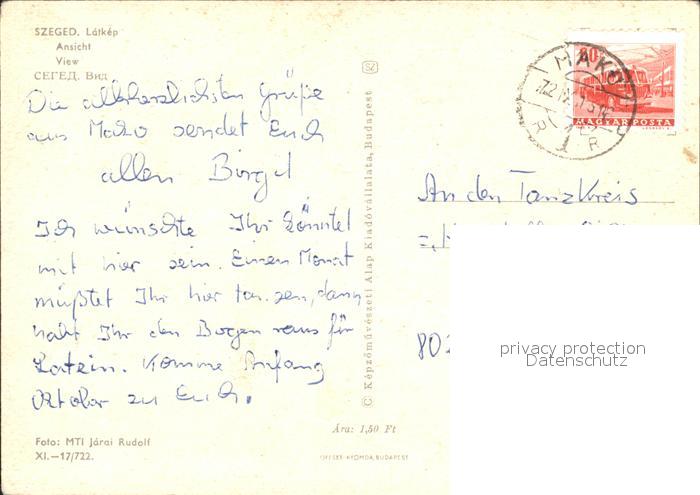 SZEGED. Látkép
Ansicht
View
СЕГЕД. Вид
Die allerherzlichsten Grüße
aus Mako sendet Euch
allen Birgit
Ich wünschte Ihr könntet
mit hier sein. Einen Monat
müßtet Ihr hier tanzen, dann
habt Ihr den Bogen raus für
Latein. Komme Anfang
Oktober zu Euch.
Foto: MTI Járai Rudolf
XI.—17/722.
SZ
© Képzőművészeti Alap Kiadóvállalata, Budapest
Ára: 1,50 Ft
OFFSET-NYOMDA, BUDAPEST
80
MAGYAR POSTA
MAKÓ
An den Tanzkreis
80
privacy protection
Datenschutz